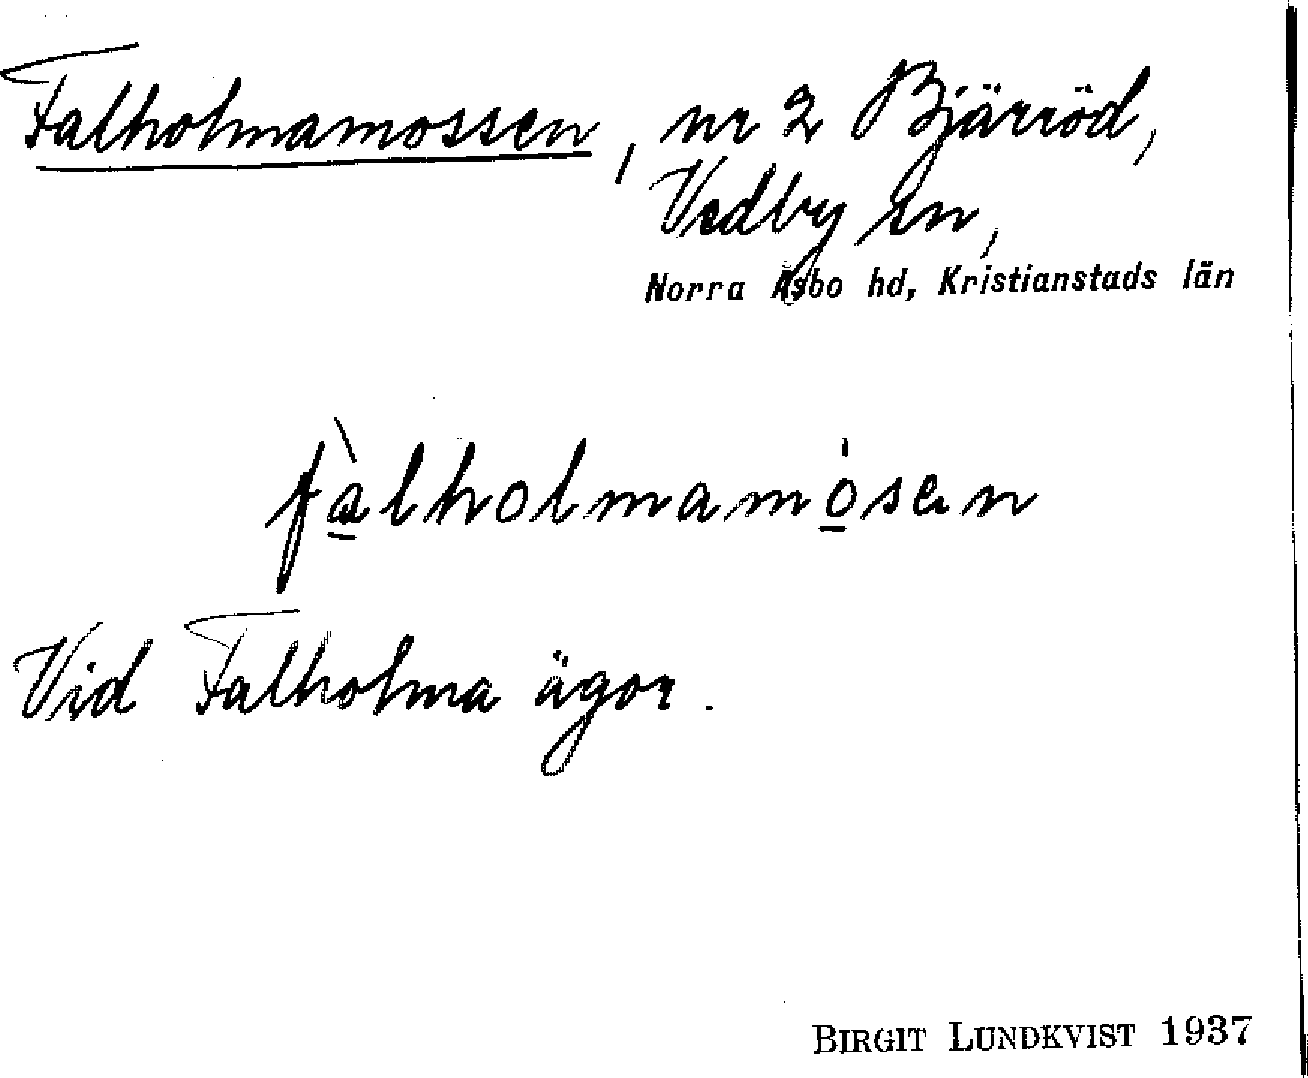 Falholmamossen, nr 2 Bjärröd,
Vedby sn,
Norra Åsbo hd, Kristianstads län
fàlholmamo̍sen
Vid Falholma ägor.
BIRGIT LUNDKVIST 1937